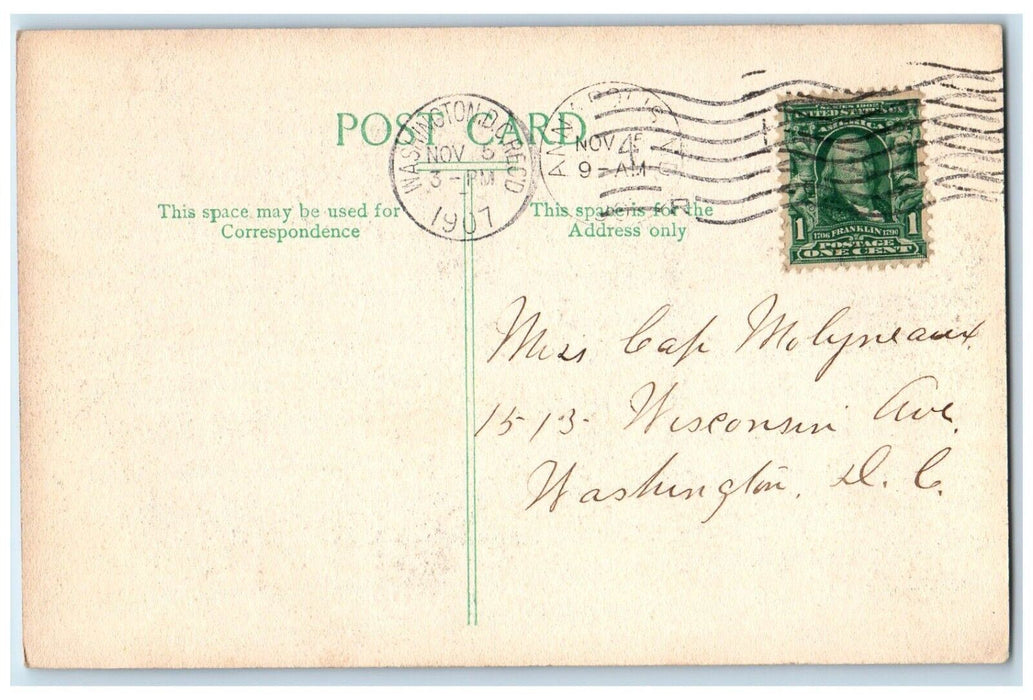 POST CARD
WASHINGTON, D.C. REC'D
NOV 5
3-PM
1907
NOV 4
9-AM
SERIES 1902
UNITED STATES OF
AMERICA
1 1706 FRANKLIN 1790 1
POSTAGE
ONE CENT
This space may be used for
Correspondence
This space is for the
Address only
Miss Cap Molyneaux.
1513 Wisconsin Ave.
Washington, D. C.